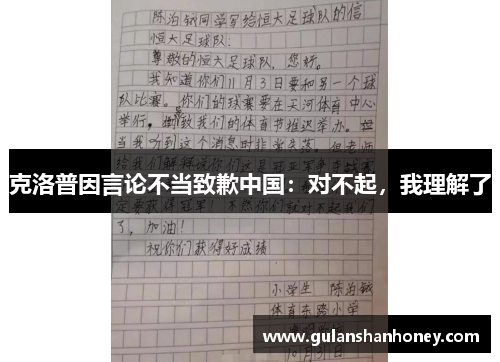 陈泊钺同学写给恒大足球队的信
恒大足球队:
尊敬的恒大足球队,您好。
我知道你们11月3日要和另一个球
队比赛。你们的球赛要在天河体育中心
举行,导致我们的体育节推迟举办。但
当我听到这个消息时非常失落。但老师
克洛普因言论不当致歉中国:对不起,我理解了
定要获得冠军!不然你们就对不起我们
了,加油!
祝你们获得好成绩
小学生 陈泊钺
体育东路小学
www.gulanshanhoney.com
10月31日